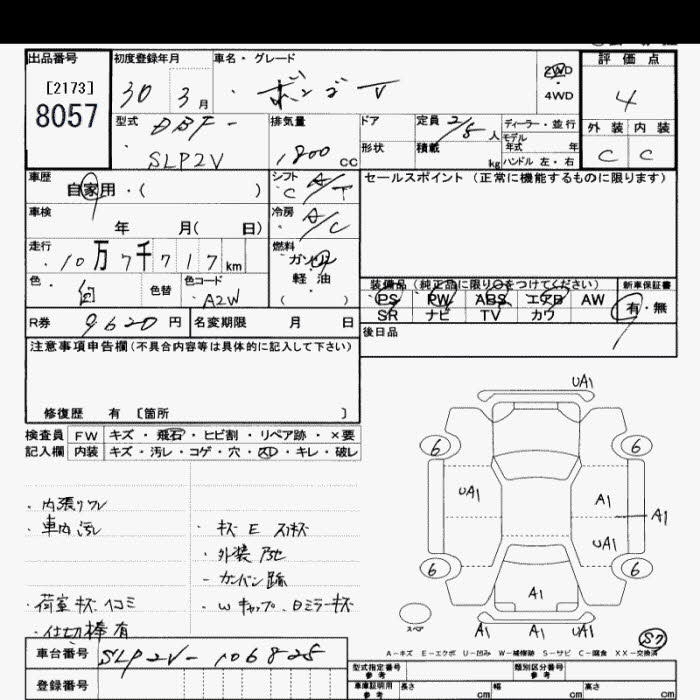 出品番号 初度登録年月 車名・グレード 評価点
[2173]
8057
30 3月 ボンゴV 2WD 4WD 4
型式 DBF- 排気量 ドア 定員 2/5人 ディーラー・並行
モデル年式 年
外装 内装
SLP2V 1800cc 形状 積載 kg ハンドル 左・右 C C
車歴 シフト A/T セールスポイント(正常に機能するものに限ります)
自家用・( ) C
車検 冷房 A/C
年 月( 日)
走行 燃料
10万7千717km ガソリン
軽油
色 色替 色コード ( ) 装備品(純正品に限り○をつけてください) 新車保証書
白 A2W PS PW ABS エアB AW 有・無
SR ナビ TV カワ
R券 9620円 名変期限 月 日 後日品
注意事項申告欄(不具合内容等は具体的に記入して下さい)
修復歴 有 [箇所 ]
検査員 FW キズ・飛石・ヒビ割・リペア跡・×要
記入欄 内装 キズ・汚レ・コゲ・穴・スレ・キレ・破レ
UA1
6 6
UA1 A1 A1
UA1
6 6
A1
スペア
A1 A1 UA1
・内張リワレ
・車内汚レ ・キズ E スリキズ
・外装
・カンバン跡
・荷室キズヘコミ ・Wキャップ、Dミラーキズ
・仕切棒有
A-キズ E-エクボ U-凹み W-補修跡 S-サビ C-腐食 XX-交換済
車台番号 SLP2V-106825
型式指定番号 参考 類別区分番号 参考
登録番号 車庫証明用 参考 長さ cm 幅 cm 高さ cm